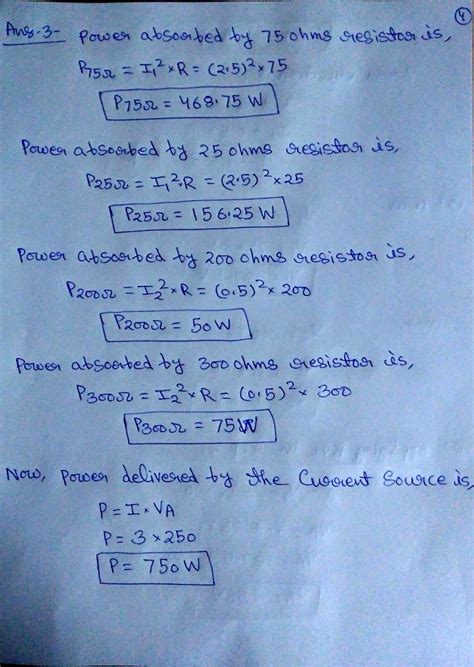 4
Ans-3- Power absorbed by 75 ohms resistor is,
P75Ω = I₁² × R = (2.5)² × 75
P75Ω = 468.75 W
Power absorbed by 25 ohms resistor is,
P25Ω = I₁².R = (2.5)² × 25
P25Ω = 156.25 W
Power absorbed by 200 ohms resistor is,
P200Ω = I₂² × R = (0.5)² × 200
P200Ω = 50 W
Power absorbed by 300 ohms resistor is,
P300Ω = I₂² × R = (0.5)² × 300
P300Ω = 75 W
Now, Power delivered by the Current Source is,
P = I × VA
P = 3 × 250
P = 750 W